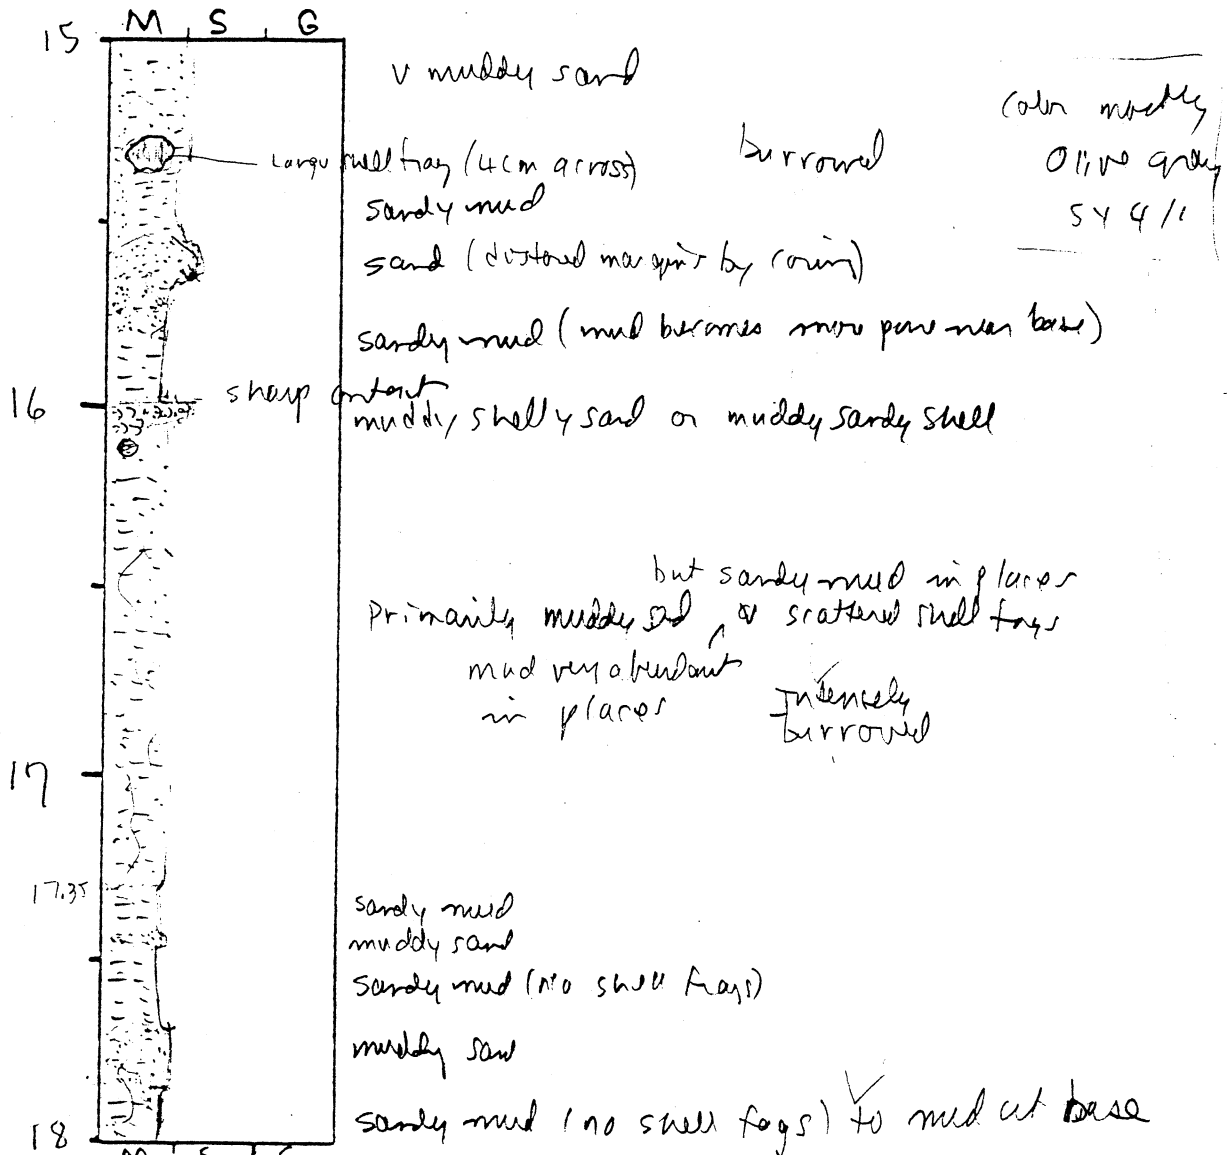 M S G
15
v muddy sand
Color mostly
Olive gray
5Y 4/1
Large shell frag (4cm across)
burrowed
sandy mud
sand (distored margins by coring)
sandy mud (mud becomes more pure near base)
16
sharp contact
muddy shelly sand or muddy sandy shell
but sandy mud in places
Primarily muddy sd w scattered shell frags
mud very abundant
in places
Intensely
burrowed
17
17.35
sandy mud
muddy sand
sandy mud (no shell frags)
muddy sand
sandy mud (no shell frags) to mud at base
18
M S G